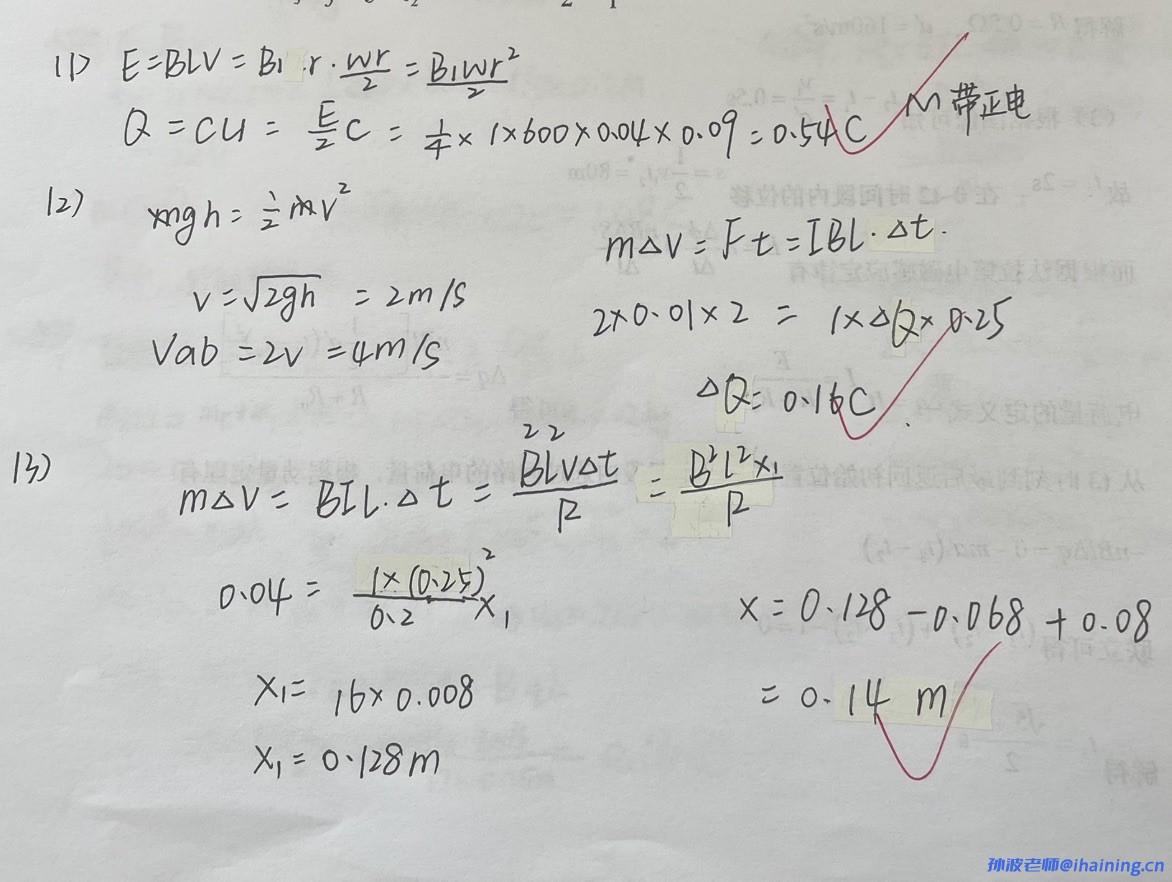 (1) E=BLV=B₁·r·wr/2=B₁wr²/2
Q=CU=E/2 C=1/4×1×600×0.04×0.09=0.54C M带正电
(2) mgh=1/2mv²
v=√2gh =2m/s
Vab=2v=4m/s
m△V=Ft=IBl·△t.
2×0.01×2=1×△Q×0.25
△Q=0.16C
(3) m△V=BIL·△t=B²L²V△t/R=B²l²x₁/R
0.04=1×(0.25)²/0.2 x₁
x₁=16×0.008
x₁=0.128m
x=0.128-0.068+0.08
=0.14m
孙波老师@ihaining.cn